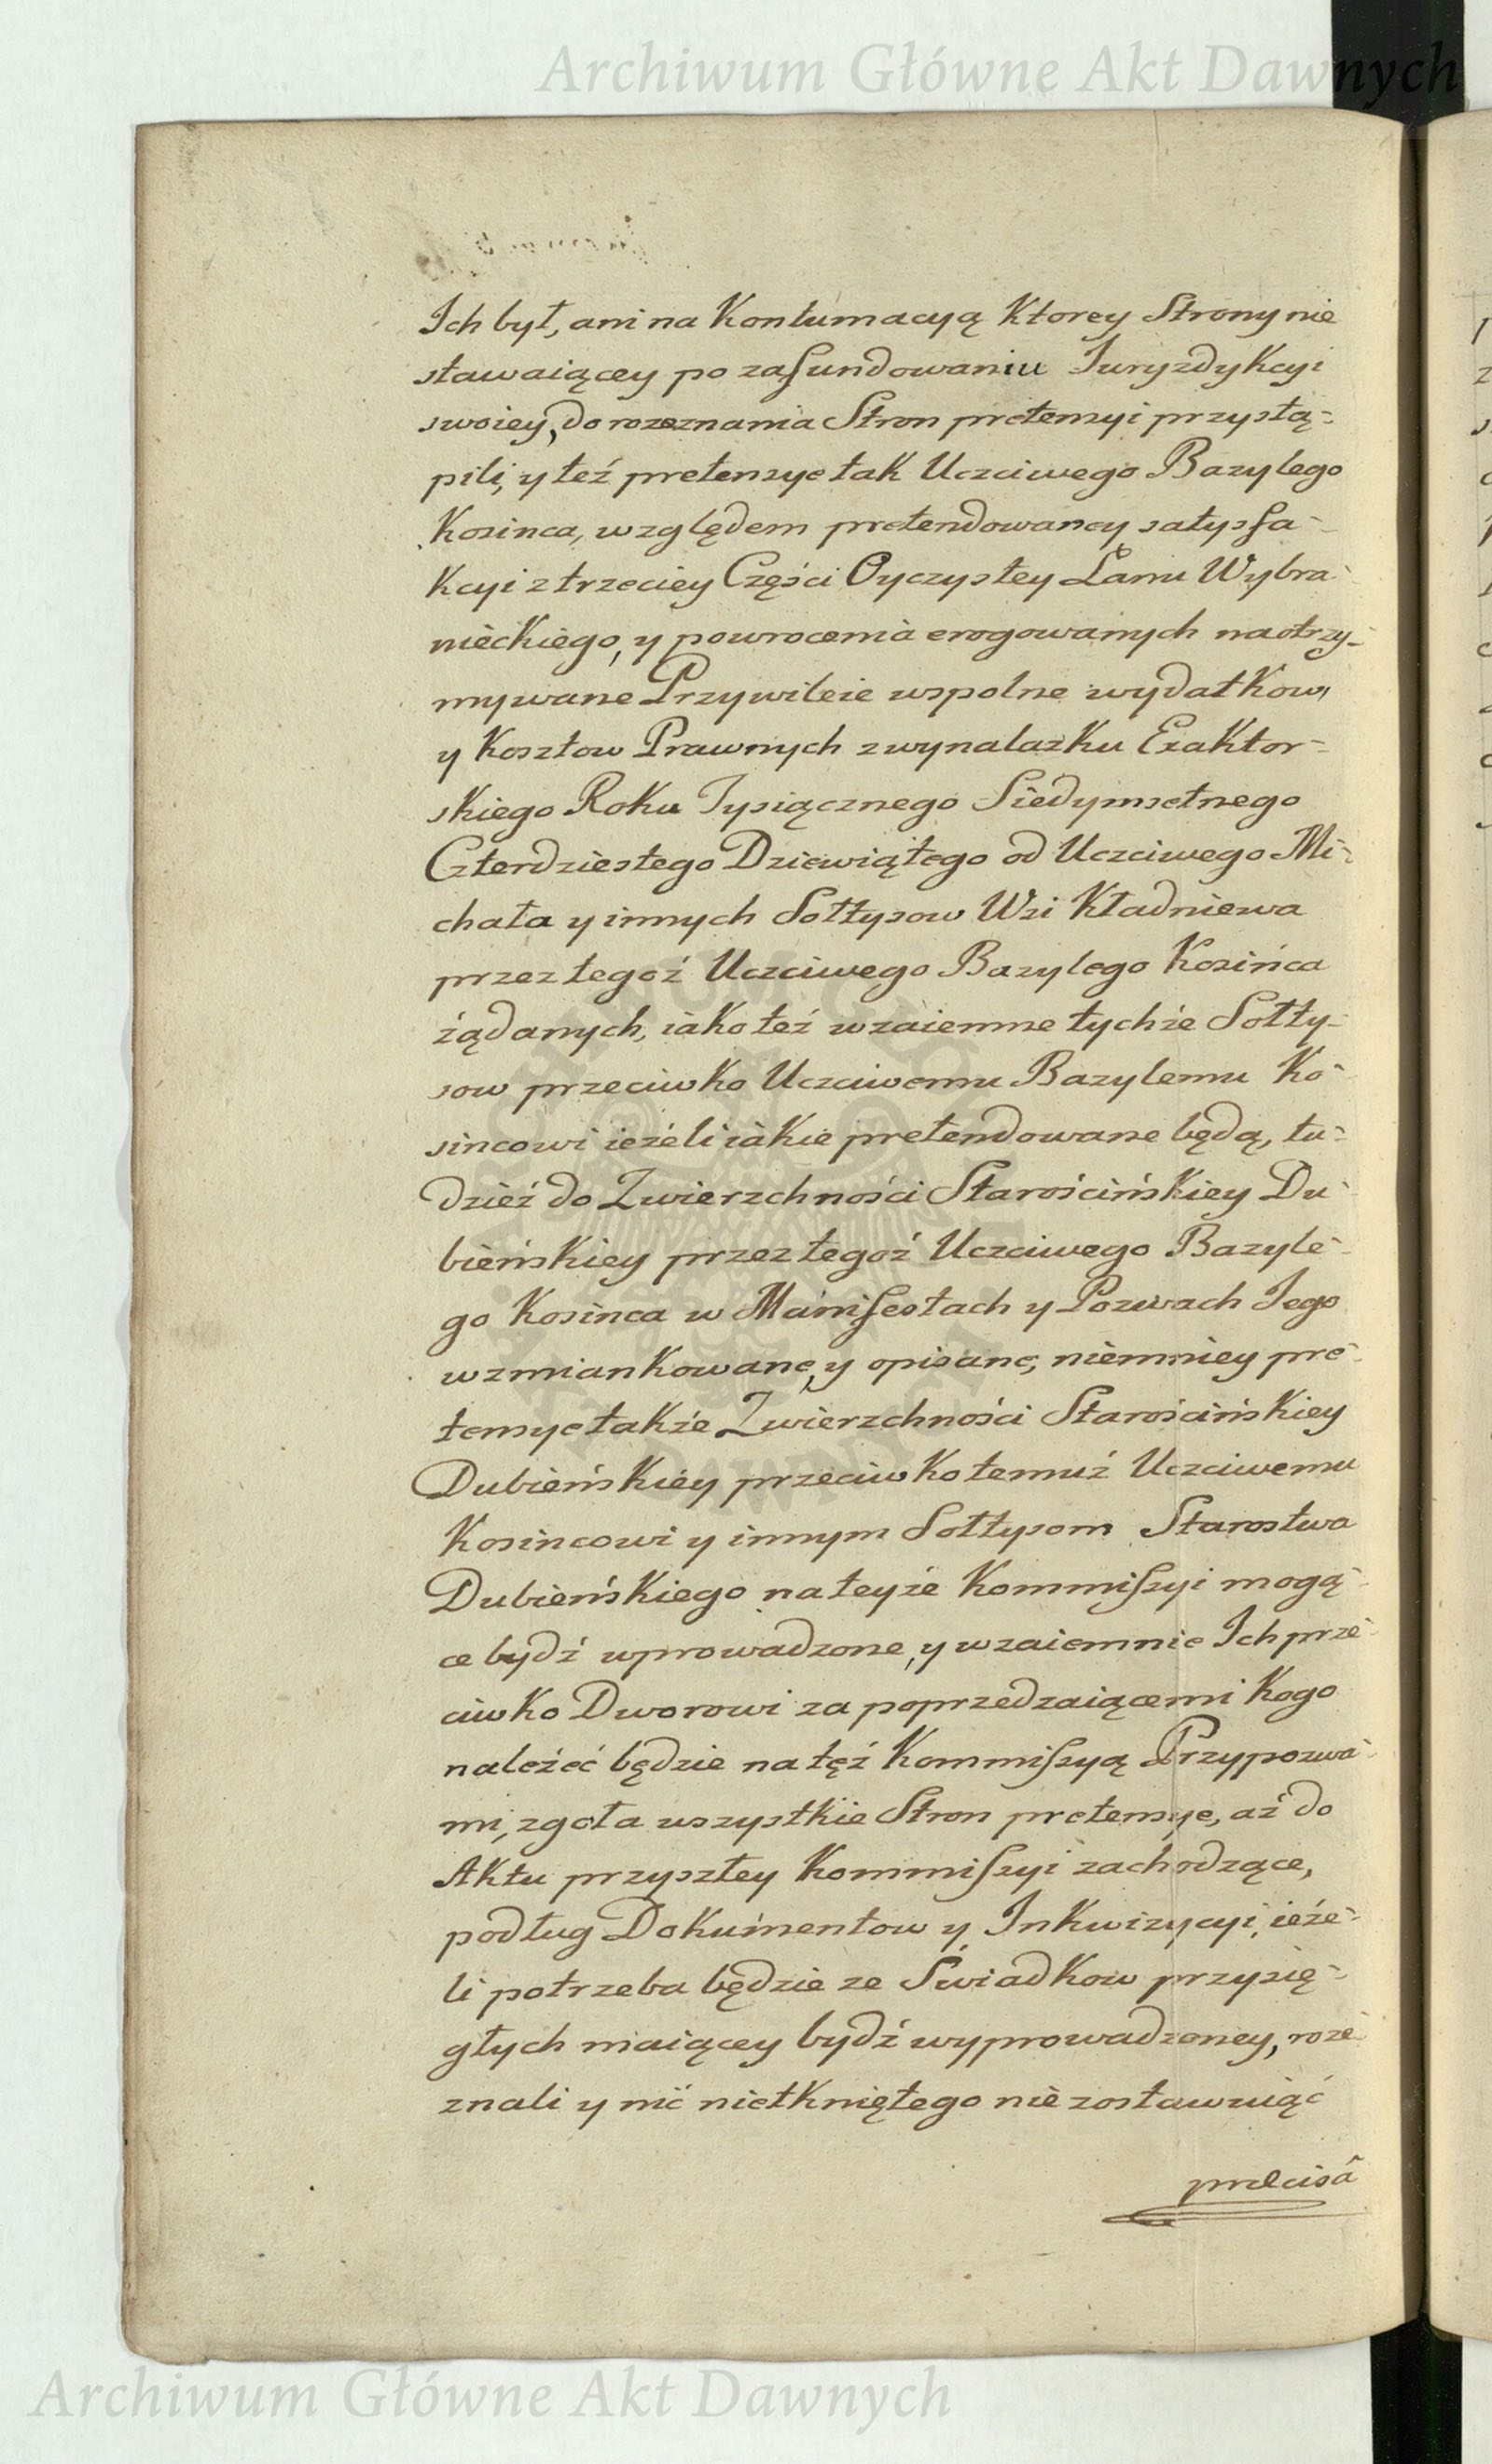 Archiwum Główne Akt Dawnych
Ich był, ani na Kontumacyą Ktorey Strony nie
stawaiącey po zafundowaniu Iuryzdykcyi
swoiey, do rozeznania Stron pretensyi przystą-
pili, y też pretensye tak Uczciwego Bazylego
Kosinca, względem pretendowaney satysfa-
kcyi z trzeciey Części Oyczystey Łanu Wybra-
nieckiego, y powrocenia erogowanych na otrzy-
mywane Przywileie wspolne wydatkow,
y Kosztow Prawnych z wynalazku Exaktor-
skiego Roku Tysiącznego Siedymsetnego
Czterdziestego Dziewiątego od Uczciwego Mi-
chała y innych Sołtysow Wsi Kładniewa
przez tegoż Uczciwego Bazylego Kosińca
żądanych, iako też wzaiemne tychże Sołty-
sow przeciwko Uczciwemu Bazylemu Ko-
sincowi ieżeli iakie pretendowane będą, tu-
dzież do Zwierzchności Starościńskiey Du-
bieńskiey przez tegoż Uczciwego Bazyle-
go Kosinca w Manifestach y Pozwach Iego
wzmiankowane, y opisane, niemniey pre-
tensye także Zwierzchności Starościńskiey
Dubieńskiey przeciwko temuż Uczciwemu
Kosincowi y innym Sołtysom Starostwa
Dubieńskiego na teyże Kommissyi mogą-
ce bydź wprowadzone, y wzaiemnie Ich prze-
ciwko Dworowi za poprzedzaiącemi Kogo
należeć będzie na tęż Kommissyą Przypozwa-
mi, zgoła wszystkie Stron pretensye, aż do
Aktu przyszłey Kommissyi zachodzące,
podług Dokumentow y Inkwizycyi, ieże-
li potrzeba będzie ze Swiadkow przysię-
głych maiącey bydź wyprowadzoney, roze-
znali y nic nietkniętego nie zostawuiąc
præcisâ
Archiwum Główne Akt Dawnych